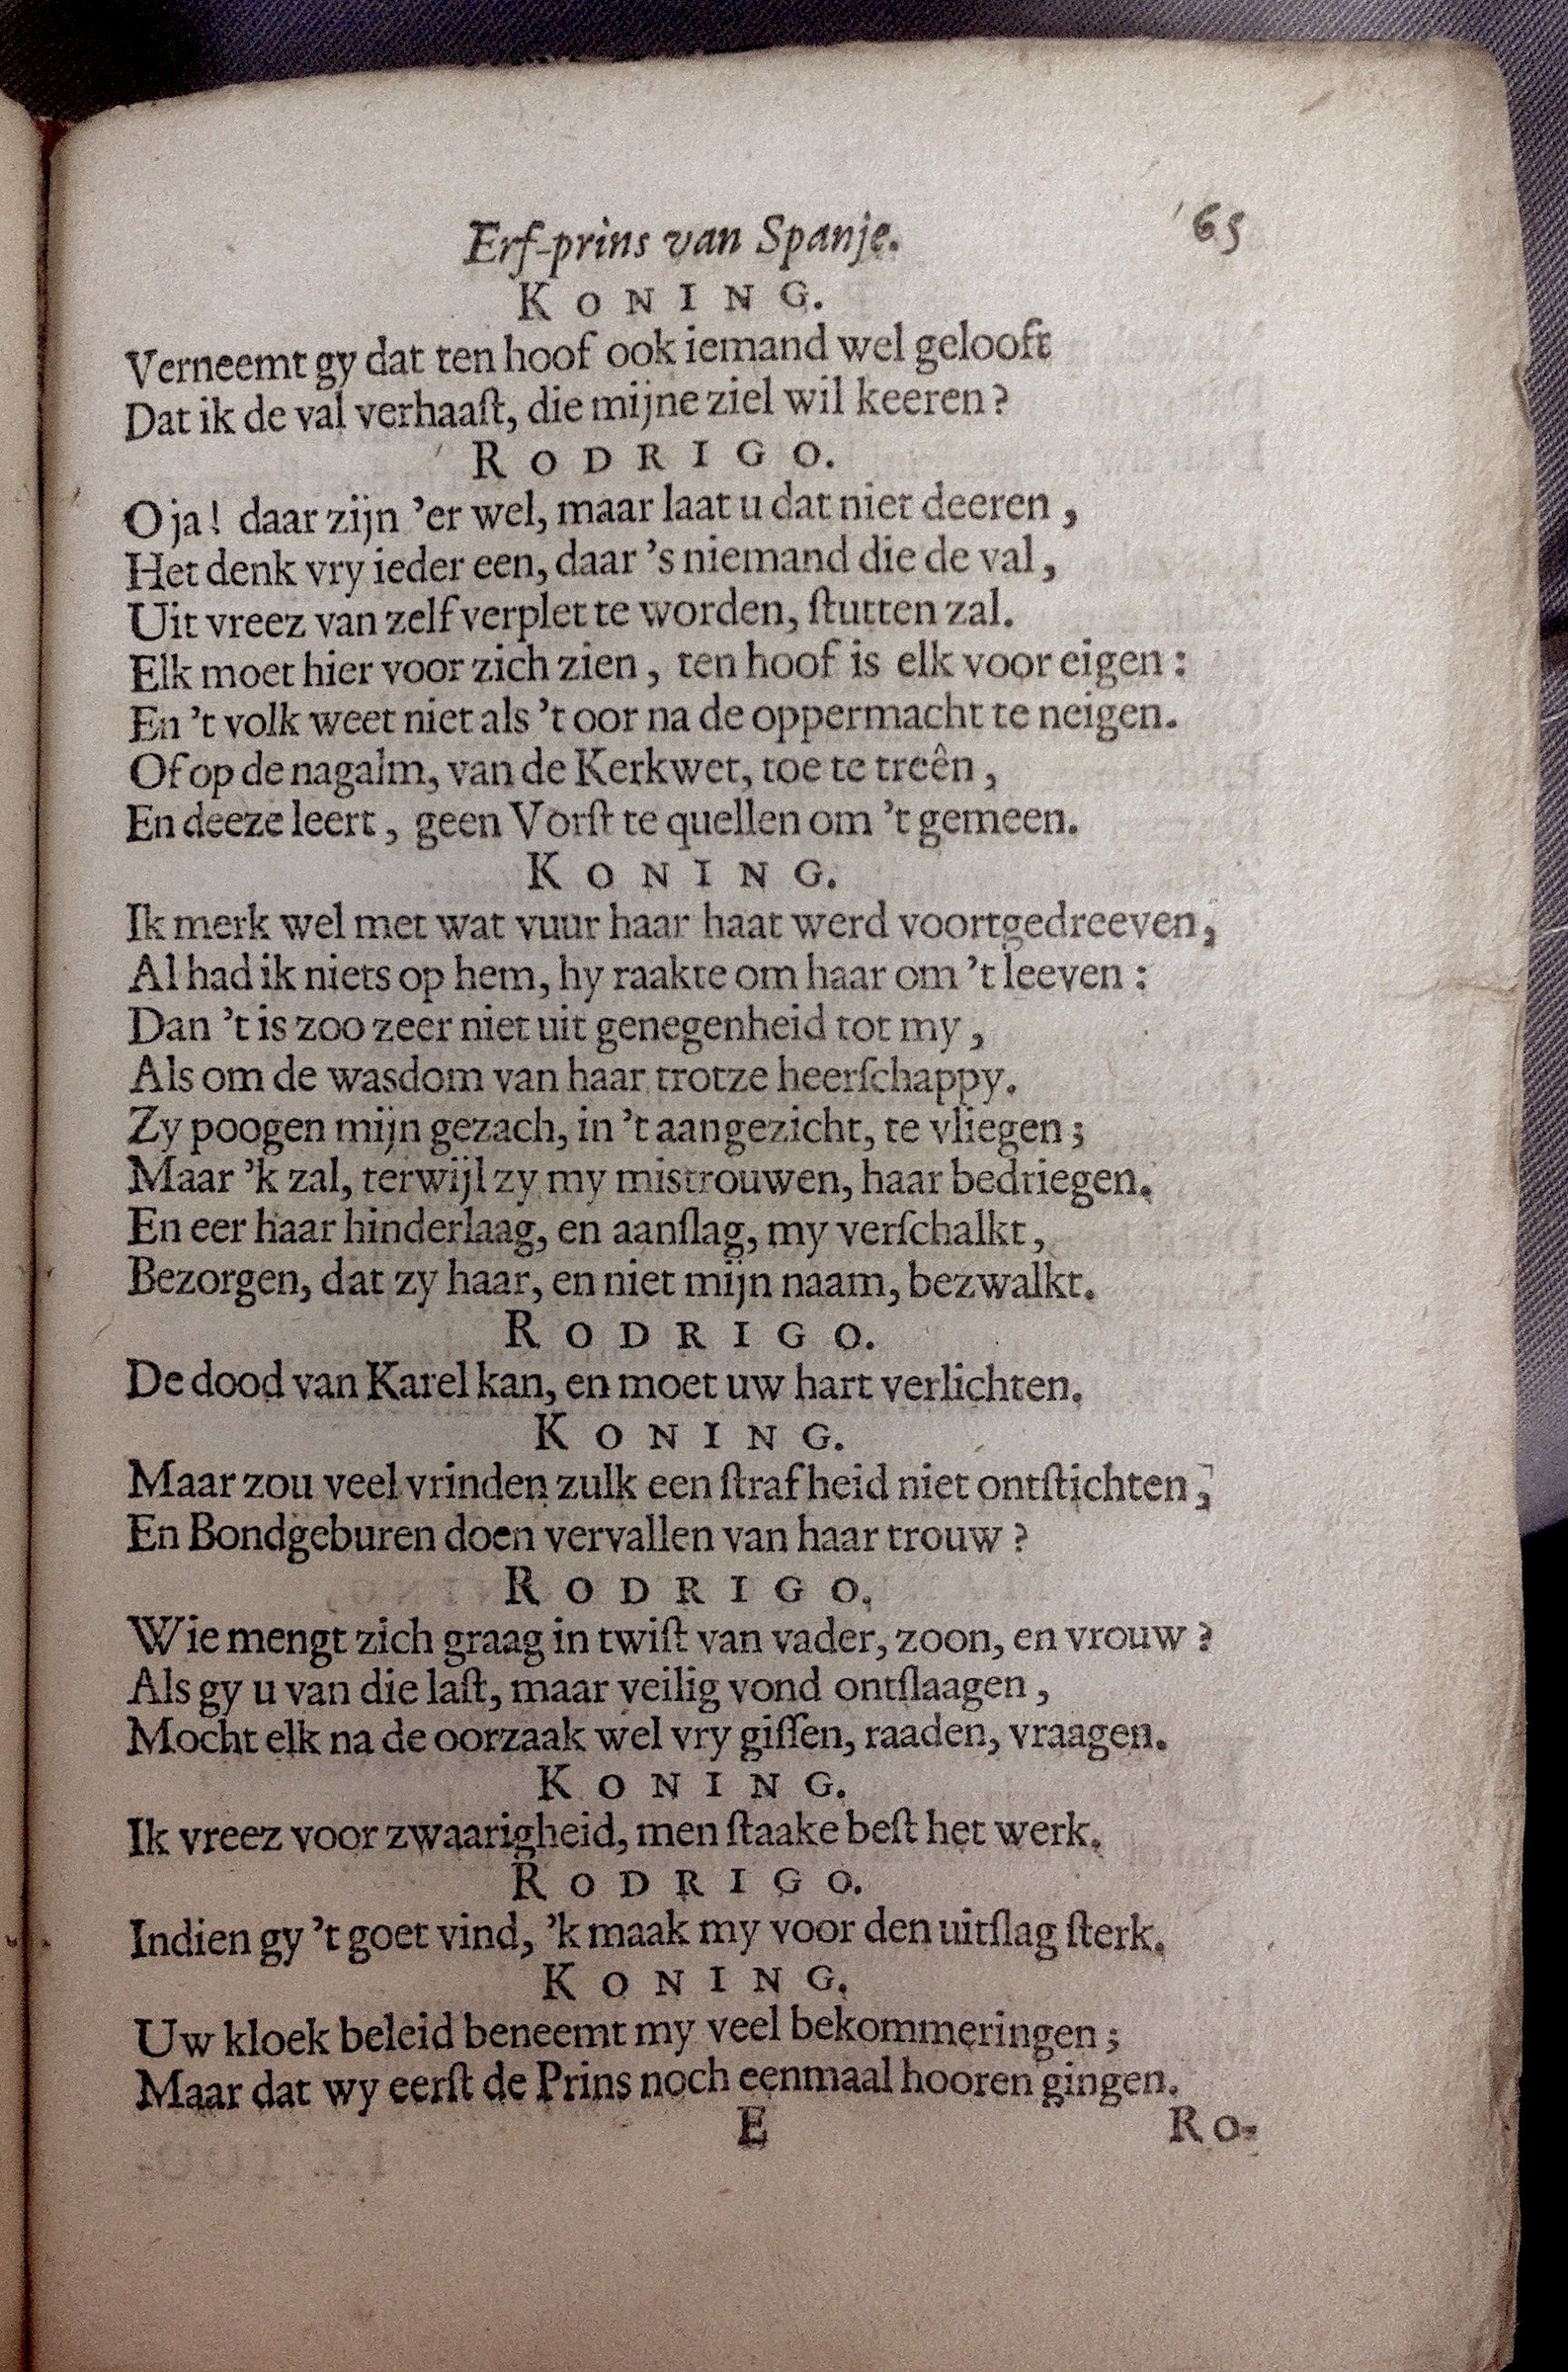 Erf-prins van Spanje. 65
KONING.
Verneemt gy dat ten hoof ook iemand wel gelooft
Dat ik de val verhaaſt, die mijne ziel wil keeren?
RODRIGO.
O ja! daar zijn ’er wel, maar laat u dat niet deeren,
Het denk vry ieder een, daar ’s niemand die de val,
Uit vreez van zelf verplet te worden, ſtutten zal.
Elk moet hier voor zich zien, ten hoof is elk voor eigen:
En ’t volk weet niet als ’t oor na de oppermacht te neigen.
Of op de nagalm, van de Kerkwet, toe te treên,
En deeze leert, geen Vorſt te quellen om ’t gemeen.
KONING.
Ik merk wel met wat vuur haar haat werd voortgedreeven,
Al had ik niets op hem, hy raakte om haar om ’t leeven:
Dan ’t is zoo zeer niet uit genegenheid tot my,
Als om de wasdom van haar trotze heerſchappy.
Zy poogen mijn gezach, in ’t aangezicht, te vliegen;
Maar ’k zal, terwijl zy my mistrouwen, haar bedriegen.
En eer haar hinderlaag, en aanſlag, my verſchalkt,
Bezorgen, dat zy haar, en niet mijn naam, bezwalkt.
RODRIGO.
De dood van Karel kan, en moet uw hart verlichten.
KONING.
Maar zou veel vrinden zulk een ſtrafheid niet ontſtichten,
En Bondgeburen doen vervallen van haar trouw?
RODRIGO.
Wie mengt zich graag in twiſt van vader, zoon, en vrouw?
Als gy u van die laſt, maar veilig vond ontſlaagen,
Mocht elk na de oorzaak wel vry giſſen, raaden, vraagen.
KONING.
Ik vreez voor zwaarigheid, men ſtaake beſt het werk.
RODRIGO.
Indien gy ’t goet vind, ’k maak my voor den uitſlag ſterk.
KONING.
Uw kloek beleid beneemt my veel bekommeringen;
Maar dat wy eerſt de Prins noch eenmaal hooren gingen.
E Ro-